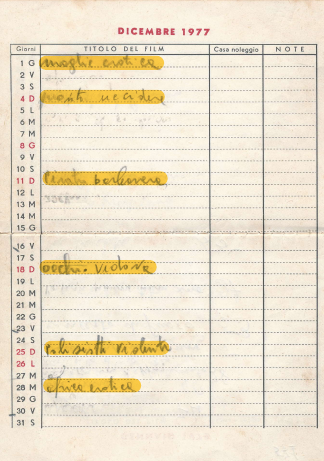 DICEMBRE 1977
Giorni TITOLO DEL FILM Casa noleggio NOTE
1 G moglie erotica
2 V
3 S
4 D pronti uccidere
5 L
6 M
7 M
8 G
9 V
10 S
11 D
12 L
13 M
14 M
15 G
16 V
17 S
18 D vedova
19 L
20 M
21 M
22 G
23 V
24 S
25 D violenta
26 L
27 M
28 M africa erotica
29 G
30 V
31 S